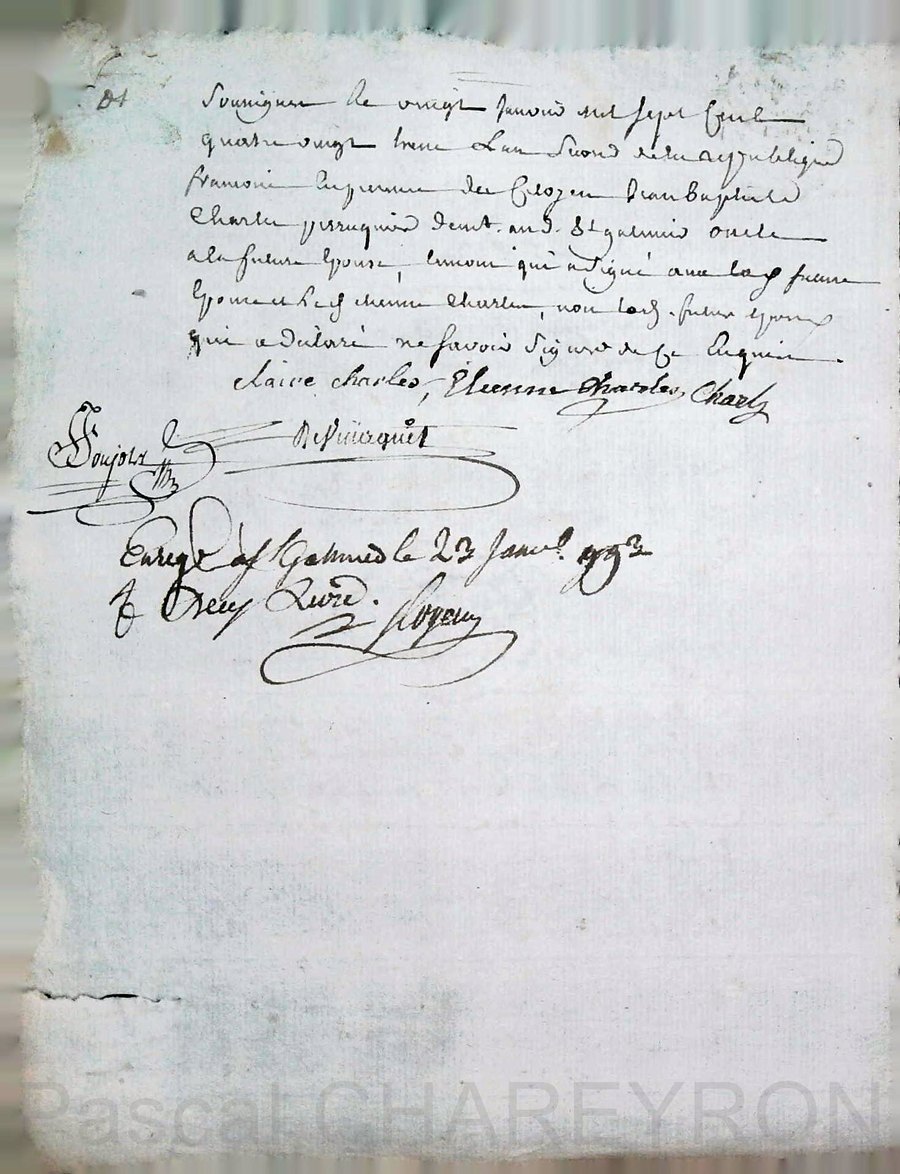 Soussignés le vingt janvier mil sept Cent
quatre vingt treize L'an Second de la republique
francoise En presence du Citoyen Jean Baptiste
Charles perruquier demt. aud. St galmier oncle
a la future Epouse, temoin qui a signé avec lad future
Epouse et Led etienne Charles, non led. futur Epoux
qui a déclaré ne savoir Signer de Ce Enquis.
claire charles, Etienne charles, Charles
Enregt. à St Galmier le 23 Janvr. 1793